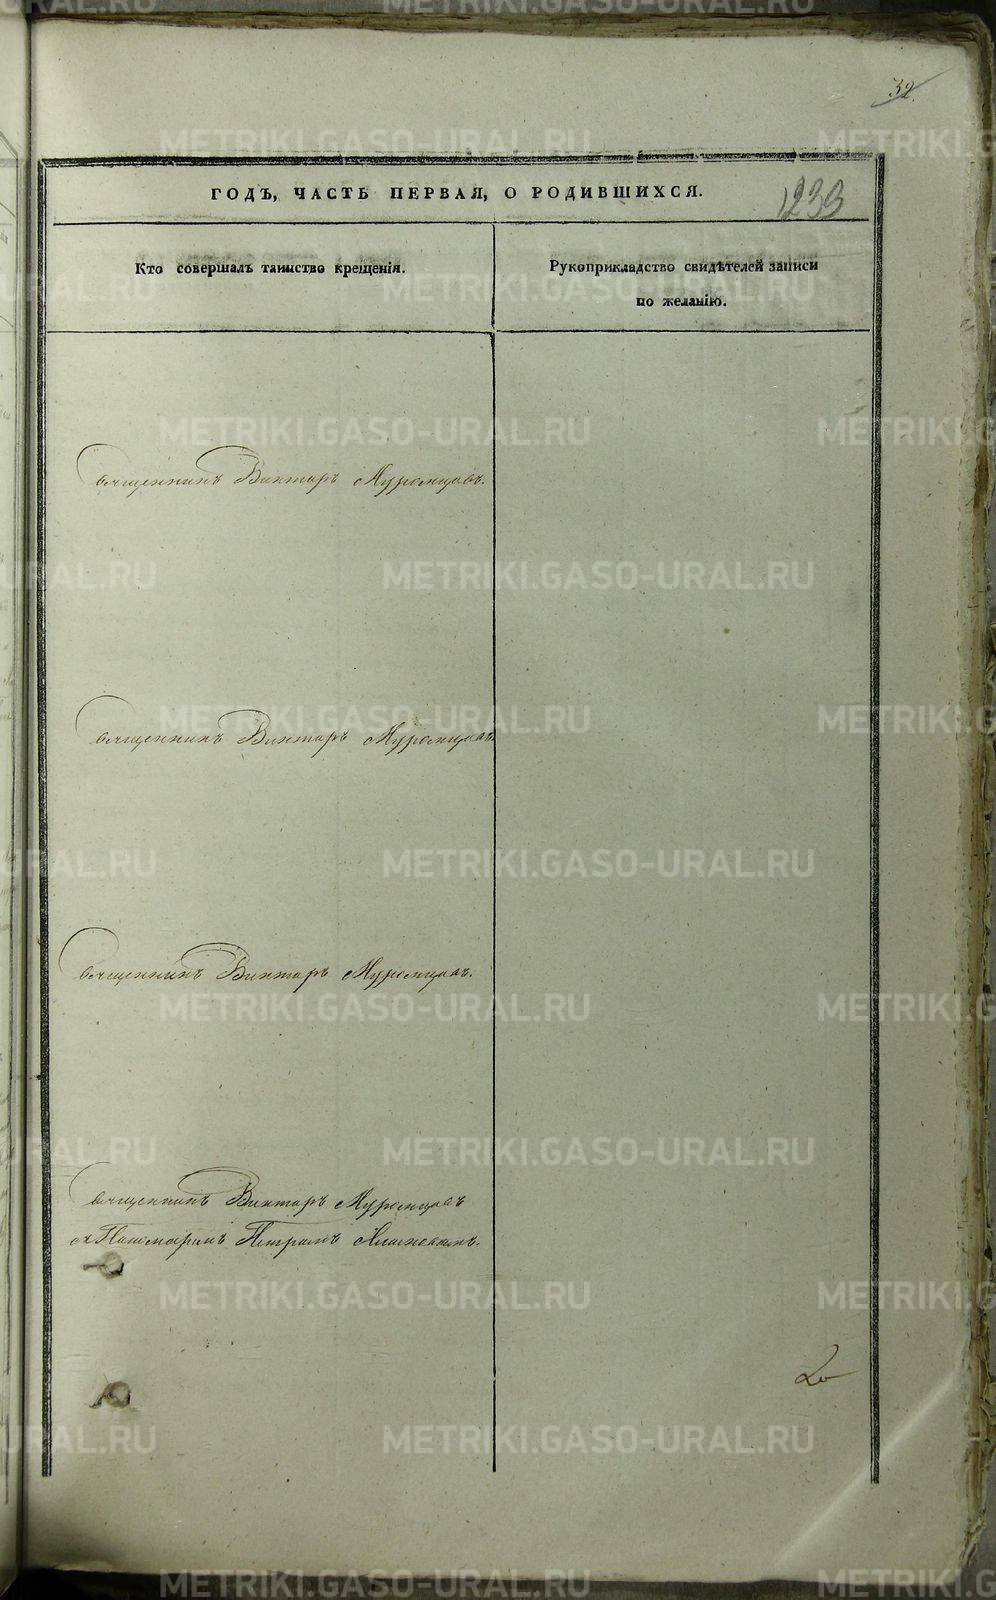 32.
ГОДЪ, ЧАСТЬ ПЕРВАЯ, О РОДИВШИХСЯ.
1233
Кто совершалъ таинство крещенія.
Рукоприкладство свидѣтелей записи
по желанію.
Священникъ Викторъ Муромцовъ.
Священникъ Викторъ Муромцовъ.
Священникъ Викторъ Муромцовъ.
Священникъ Викторъ Муромцовъ
съ Пономаремъ Петромъ
METRIKI.GASO-URAL.RU